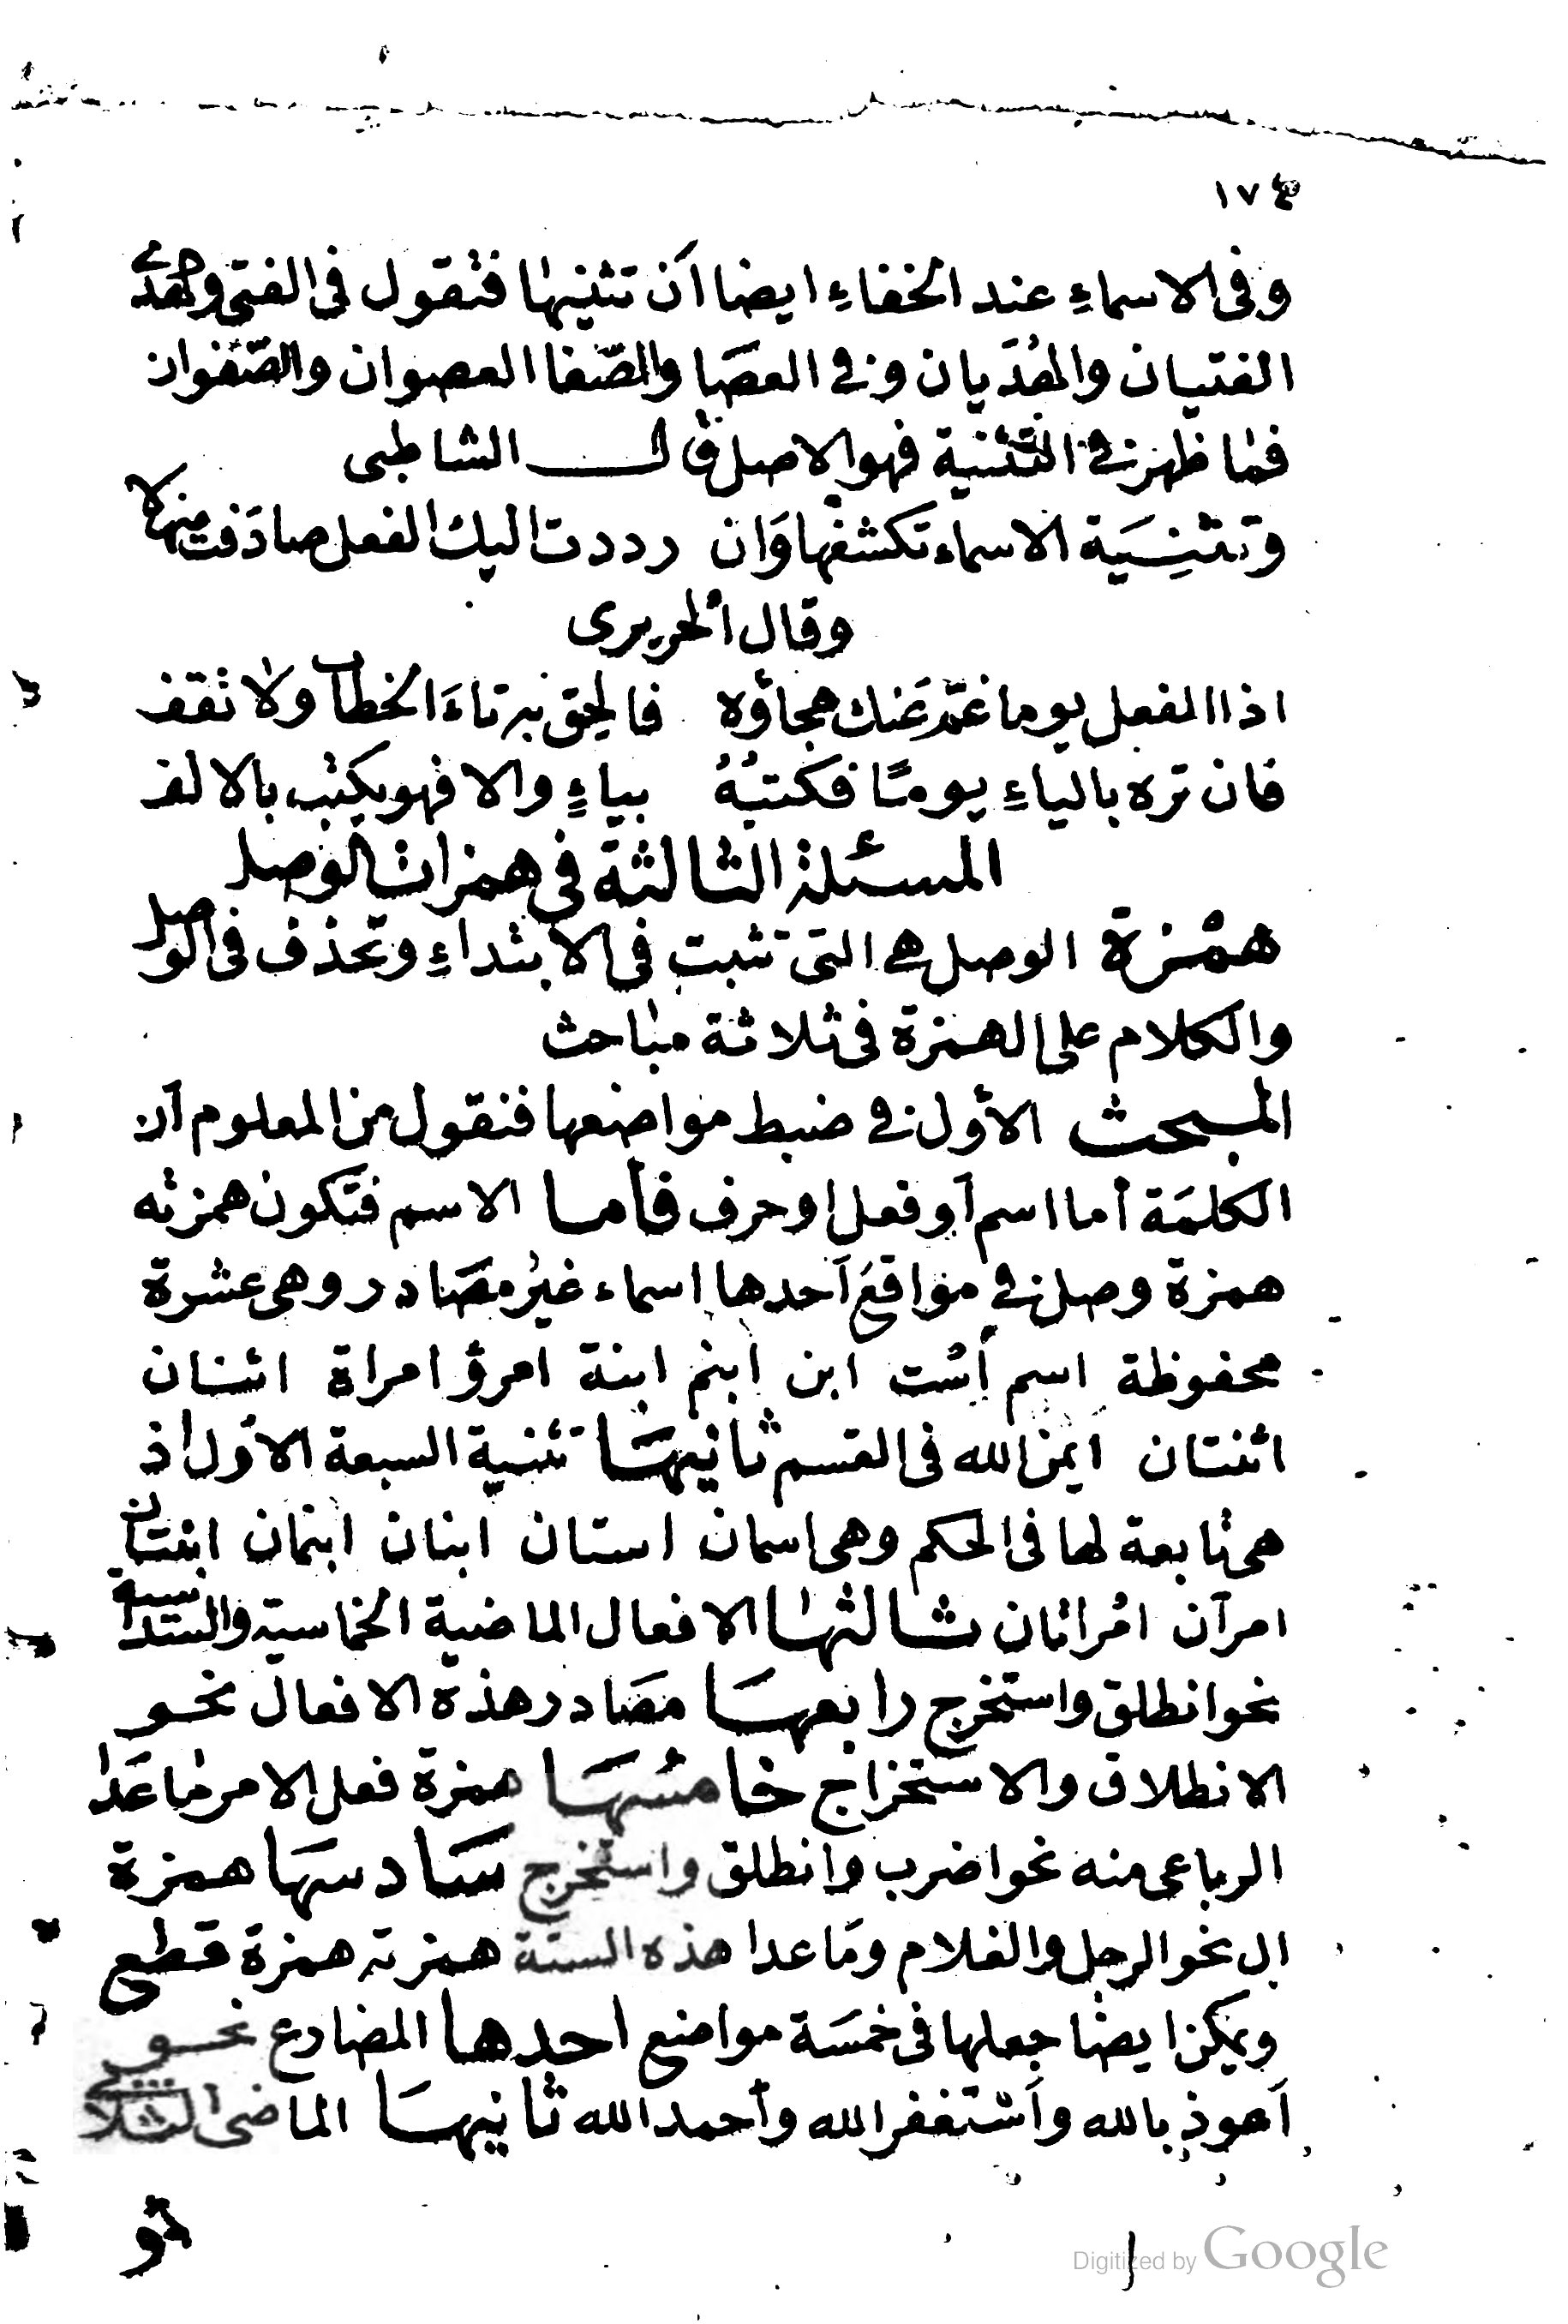 ١٧٤
وفى الاسماءِ عند الخفاءِ ايضا ان تثنيها فتقول فى الفتى وهدى
الفتيان والهُدَيان وفى العصَا والصّفا العصوان والصّفوان
فما ظهر فى التّثنية فهو الاصل قال الشاطبى
وتثنِيَة الاسماء تكشفها وَان رددت اليك الفعل صادَفت منهلا
وقال الحريرى
اذا الفعل يوما غمّ عَنك هجاؤه فالحق به تاءَ الخطاب ولا تقف
فان تره بالياءِ يومًا فكتبُهُ بياءٍ والا فهو يكتب بالالف
المسئلة الثالثة فى همزات الوصل
همْزة الوصل هى التى تثبت فى الابتداءِ وتحذف فى الوصل
والكلام على الهمزة فى ثلاثة مباحث
المبحث الأول فى ضبط مواضعها فنقول من المعلوم أن
الكلمَة أما اسم أو فعل او حرف فأما الاسم فتكون همزته
همزة وصل فى مواقعَ أحدها اسماء غيرُ مصَادر وهى عشرة
محفوظة اسم اسْت ابن ابنم ابنة امرؤ امراة اثنان
اثنتان ايمن الله فى القسم ثانيهَا تثنية السبعة الأول اذ
هى تابعة لها فى الحكم وهى اسمان استان ابنان ابنمان ابنتان
امرآن امْراتان ثالثها الافعال الماضية الخماسية والسّداسية
نحو انطلق واستخرج رابعهَا مصَادر هذه الافعال نحو
الانطلاق والاستخراج خامسُهَا همزة فعل الامر ما عَدا
الرباعى منه نحو اضرب وانطلق واستخرج سَادسهَا همزة
ال نحو الرجل والغلام ومَا عدا هذه الستة همزته همزة قطع
ويمكن ايضا جعلها فى خمسَة مواضع احدها المضارع نحو
أعوذ بالله وأستغفر الله وأحمد الله ثانيهَا الماضى الثلاثى
نحو
Digitized by Google